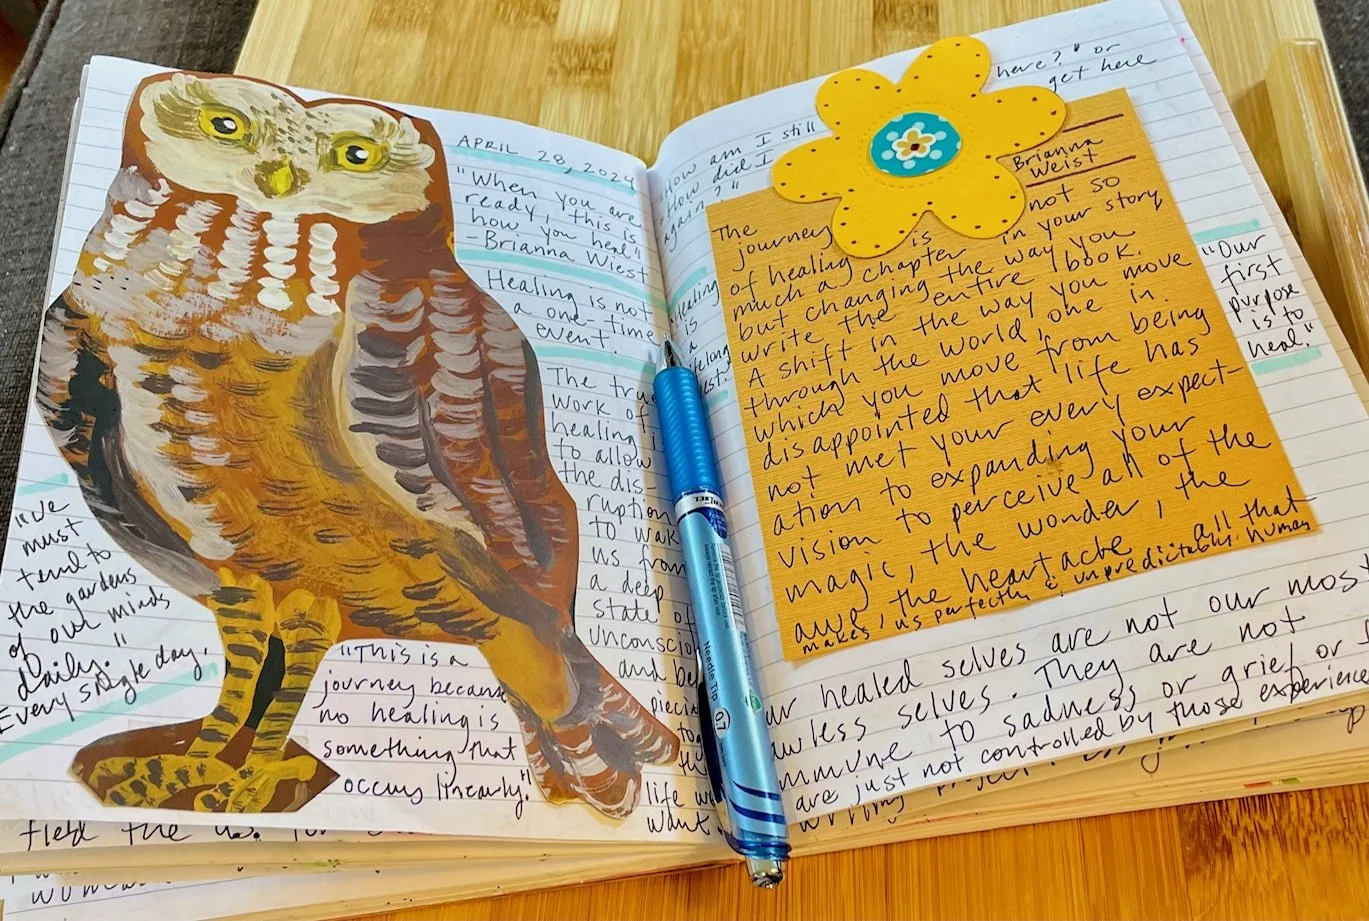 APRIL 28, 2024
"When you are
ready, this is
how you heal"
-Brianna Wiest
Healing is not
a one time
event.
The true
work of
healing is
to allow
the dis-
ruption
to wake
us from
a deep
state of
unconscio
and be
piecin
tog
the
life we
want.
"We
must
tend to
the gardens
of our minds
daily."
Every single day.
"This is a
journey because
no healing is
something that
occurs linearly."
field the
How am I still
here?" or
How did I
get here
again?"
Healing
is
a
lifelong
quest.
Brianna
Weist
The
journey
of healing is not so
much a chapter in your story
but changing the way you
write the entire book.
A shift in the way you move
through the world, one in
which you move from being
disappointed that life has
not met your every expect-
ation to expanding your
vision to perceive all of the
magic, the wonder, the
awe, the heartache all that
makes us perfectly & unpredictably human
"Our
first
purpose
is to
heal."
our healed selves are not our most
flawless selves. They are not
immune to sadness or grief or
are just not controlled by those experience
Needle Tip 0.7